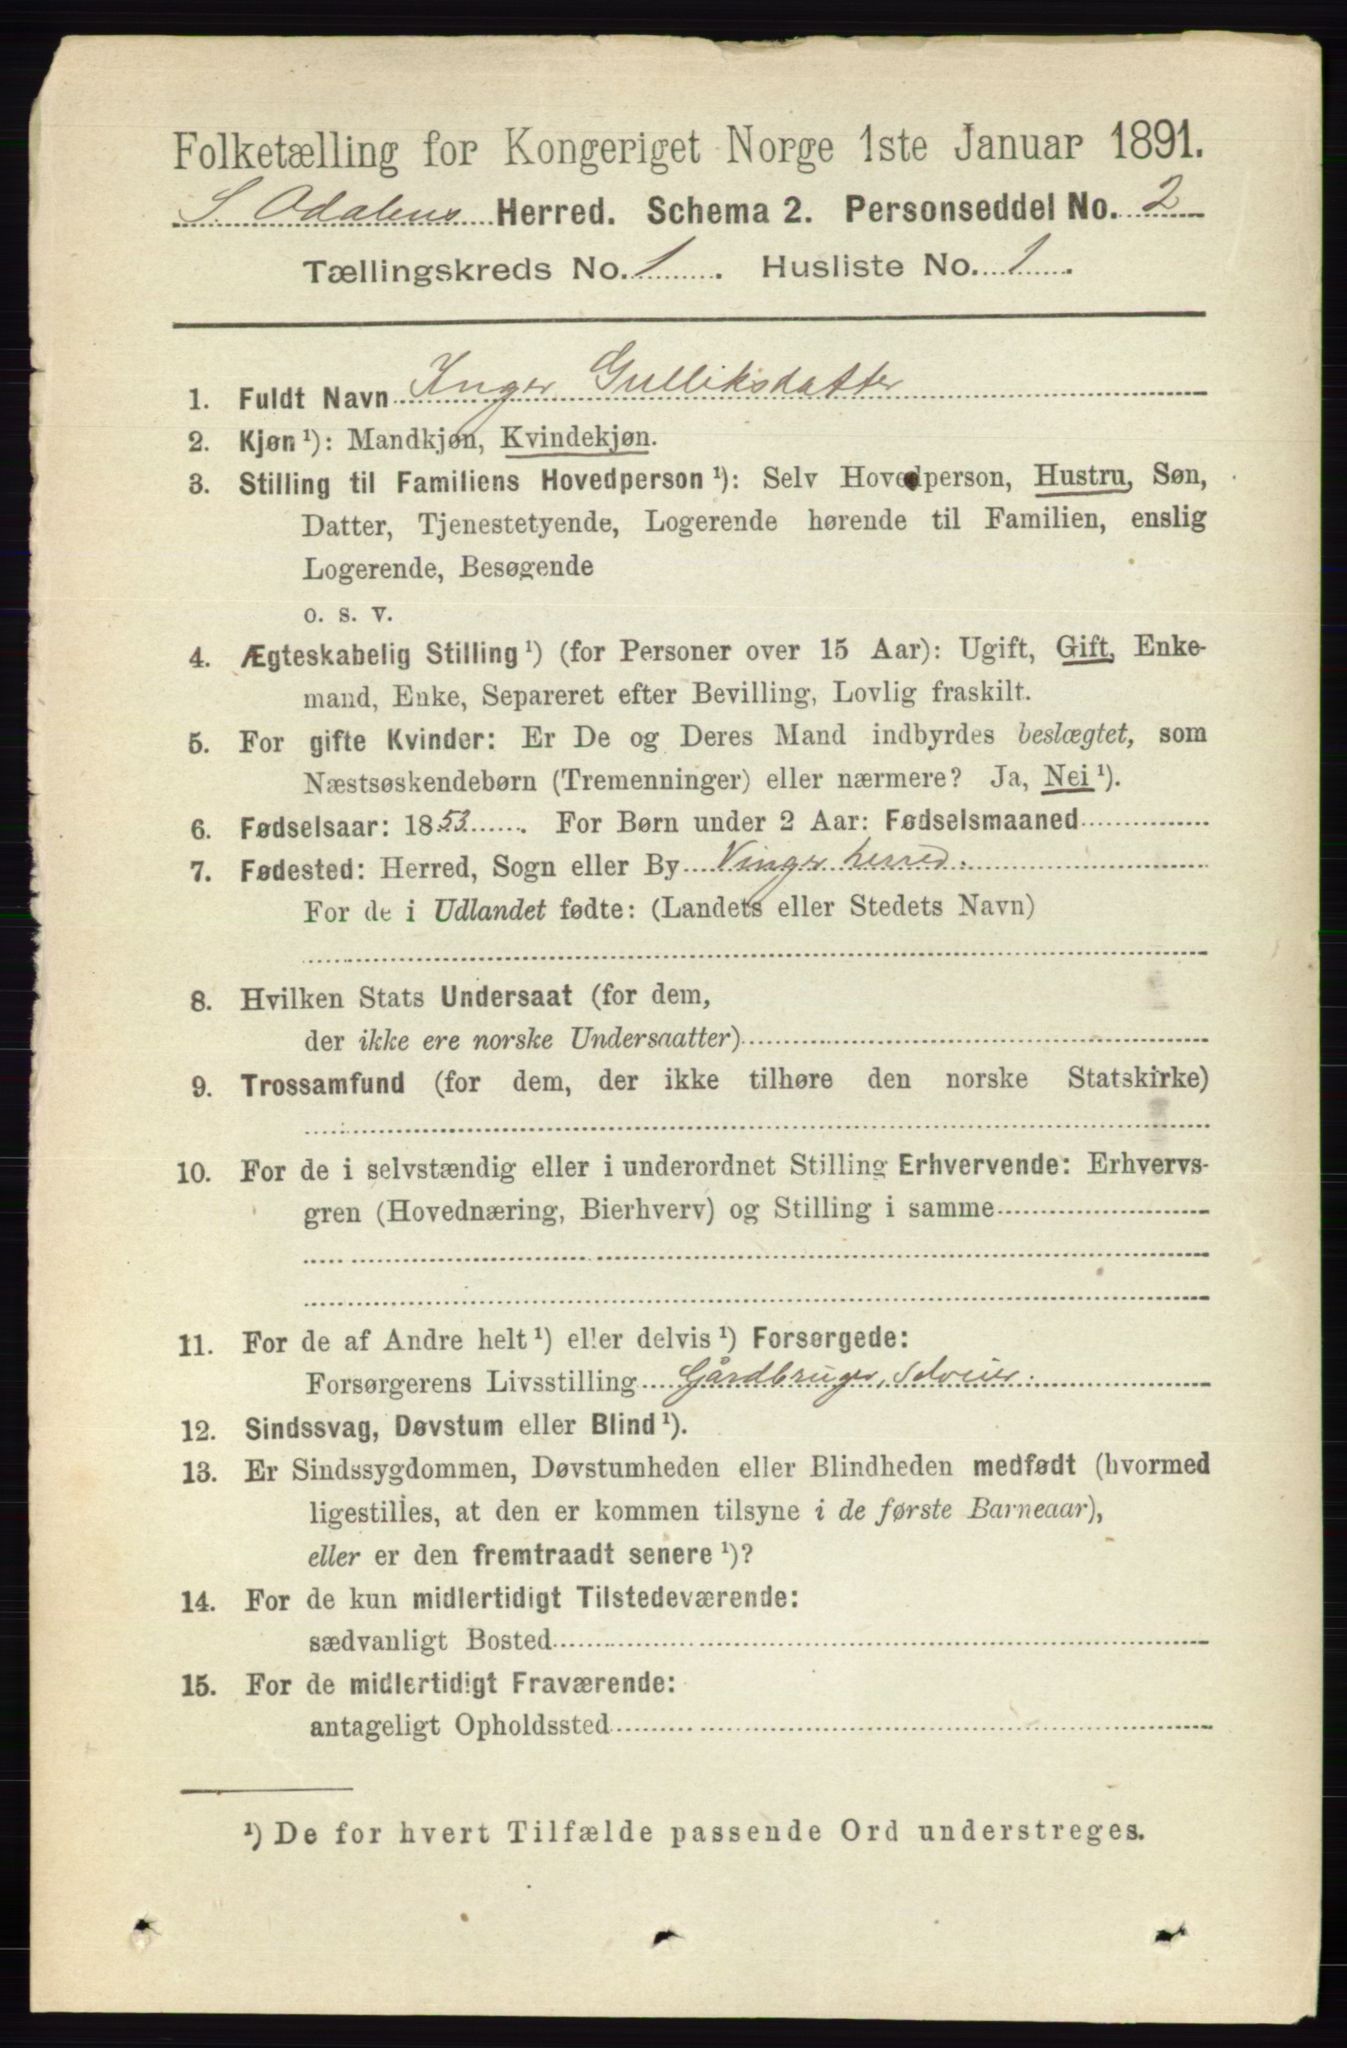 Folketælling for Kongeriget Norge 1ste Januar 1891.
S. Odalens Herred. Schema 2. Personseddel No. 2
Tællingskreds No. 1. Husliste No. 1.
1. Fuldt Navn Inger Gulliksdatter
2. Kjøn¹): Mandkjøn, Kvindekjøn.
3. Stilling til Familiens Hovedperson¹): Selv Hovedperson, Hustru, Søn,
Datter, Tjenestetyende, Logerende hørende til Familien, enslig
Logerende, Besøgende
o. s. v.
4. Ægteskabelig Stilling¹) (for Personer over 15 Aar): Ugift, Gift, Enke-
mand, Enke, Separeret efter Bevilling, Lovlig fraskilt.
5. For gifte Kvinder: Er De og Deres Mand indbyrdes beslægtet, som
Næstsøskendebørn (Tremenninger) eller nærmere? Ja, Nei¹).
6. Fødselsaar: 1853. For Børn under 2 Aar: Fødselsmaaned
7. Fødested: Herred, Sogn eller By Vinger herred.
For de i Udlandet fødte: (Landets eller Stedets Navn)
8. Hvilken Stats Undersaat (for dem,
der ikke ere norske Undersaatter)
9. Trossamfund (for dem, der ikke tilhøre den norske Statskirke)
10. For de i selvstændig eller i underordnet Stilling Erhvervende: Erhvervs-
gren (Hovednæring, Bierhverv) og Stilling i samme
11. For de af Andre helt¹) eller delvis¹) Forsørgede:
Forsørgerens Livsstilling Gårdbruger, Selveier.
12. Sindssvag, Døvstum eller Blind¹).
13. Er Sindssygdommen, Døvstumheden eller Blindheden medfødt (hvormed
ligestilles, at den er kommen tilsyne i de første Barneaar),
eller er den fremtraadt senere¹)?
14. For de kun midlertidigt Tilstedeværende:
sædvanligt Bosted
15. For de midlertidigt Fraværende:
antageligt Opholdssted
¹) De for hvert Tilfælde passende Ord understreges.